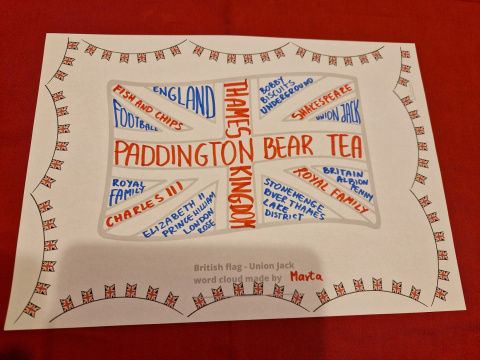 ENGLAND
FISH AND CHIPS
FOOTBALL
THAMES
BOBBY
BISCUITS
UNDERGROUND
SHAKESPEARE
UNION JACK
PADDINGTON BEAR TEA
KINGDOM
ROYAL
FAMILY
CHARLES III
ELIZABETH II
PRINCE WILLIAM
LONDON
ROSE
ROYAL FAMILY
BRITAIN
ALBION
PENNY
STONEHENGE
OVER THAMES
LAKE
DISTRICT
British flag - Union Jack
word cloud made by Marta